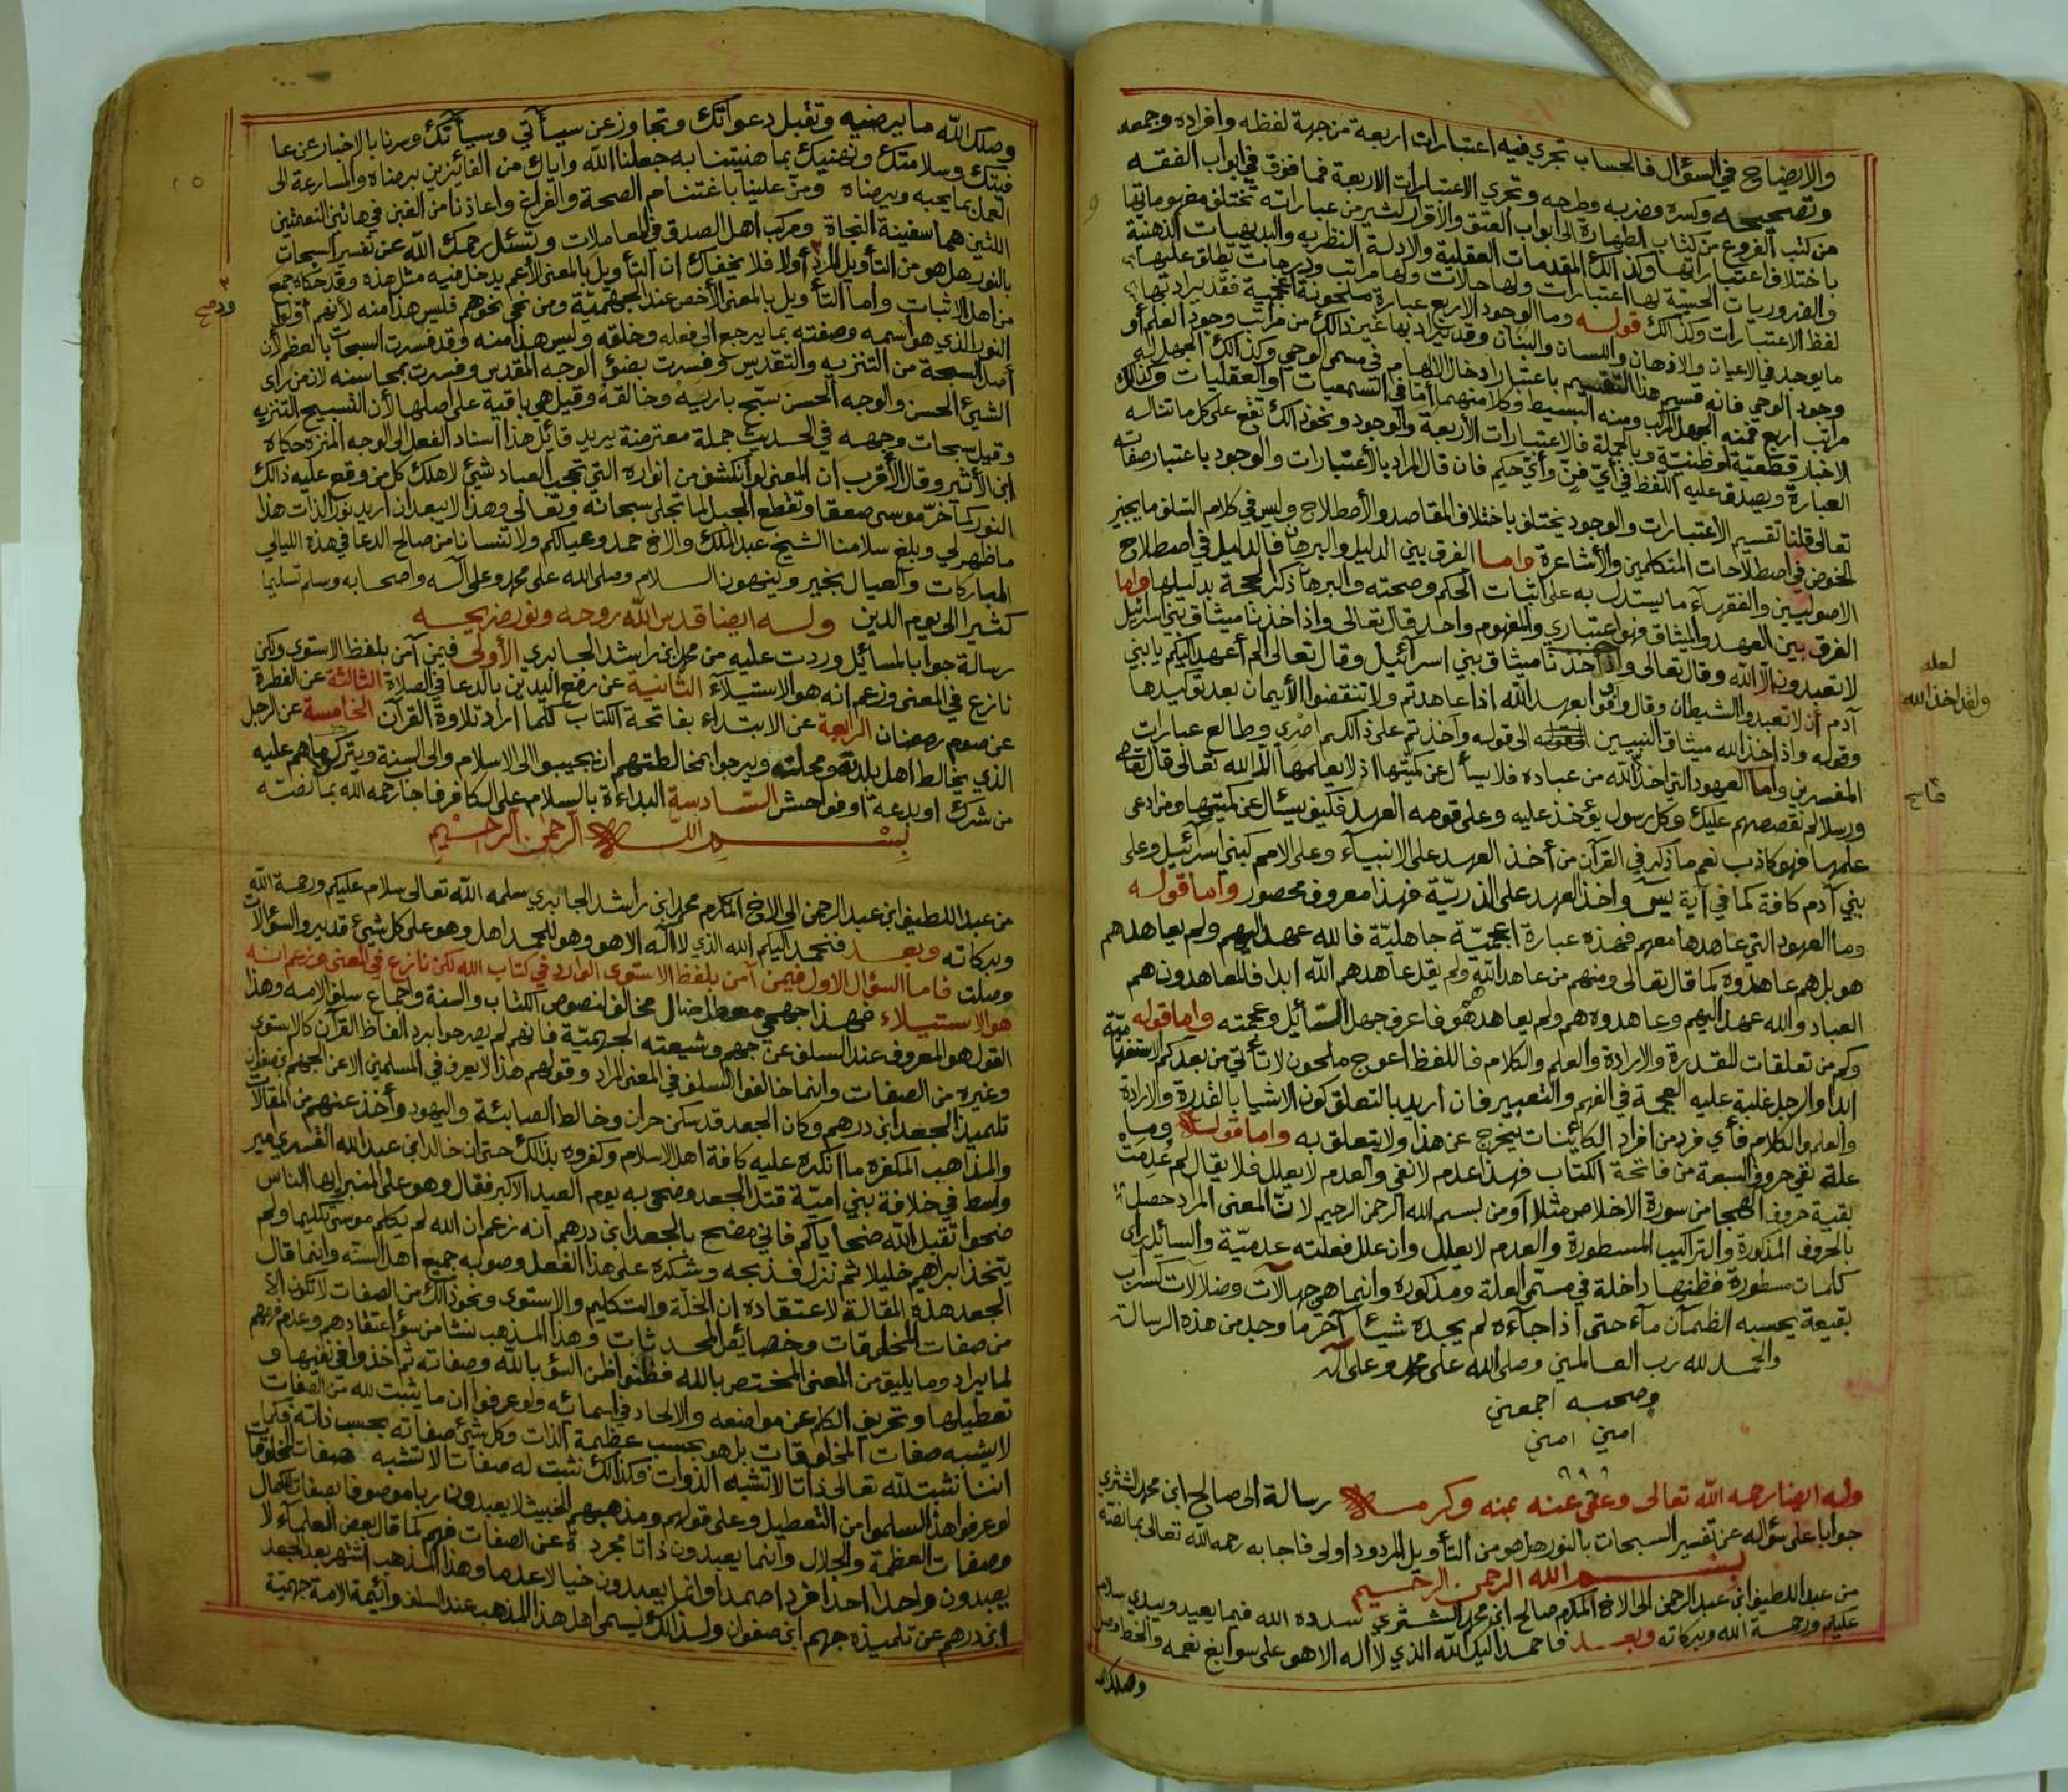 والايضاح في السؤال فالحساب تجري فيه اعتبارات اربعة من جهة لفظه وافراده وجمعه
وتصحيحه وكسره وضربه وطرحه وتجري الاعتبارات الاربعة فما فوق في ابواب الفقه
من كتب الفروع من كتاب الطهارة الى ابواب العتق والاقرار لكثير من عباراته تختلف مفهوماتها
باختلاف اعتباراتها وكذالك المقدمات العقلية والادلة النظريه والبديهيات الذهنية
والضروريات الحسيّة لها اعتبارات ولها حالات ولها مراتب ودرجات تطلق عليها
لفظ الاعتبارات وكذالك قوله وما الوجود الاربع عبارة ملحونة اعجمية فقد يراد بها
ما يوجد في الاعيان والاذهان واللسان والبنان وقد يراد بها غير ذالك من مراتب وجود العلم أو
وجود الوحي فانه قسيم هذا التقسيم باعتبار ادخال الالهام في مسمى الوحي وكذالك الجهل له
مراتب اربع فمنه الجهل المركب ومنه البسيط وكلا منهما أمّا في السمعيات أو العقليات وكذلك
الاخبار قطعيّة أو ظنيّة وبالجملة فالاعتبارات الأربعة والوجود ونحو ذالك تقع على كل ما تناله
العبارة ويصدق عليه اللفظ في أيّ فنّ وأيّ حكم فان قال المراد بالأعتبارات والوجود باعتبار صفاته
تعالى قلنا تقسيم الاعتبارات والوجود يختلف باختلاف المقاصد والأصطلاح وليس في كلام السلف ما يجيز
الخوض في اصطلاحات المتكلمين والأشاعرة واما الفرق بين الدليل والبرهان فالدليل في اصطلاح
الاصوليين والفقهآء ما يستدل به على اثبات الحكم وصحته والبرهان ذكر الحجة بدليلها واما
الفرق بين العهد والميثاق فهو اعتباري والمفهوم واحد قال تعالى واذ اخذنا ميثاق بني اسرآئيل
لا تعبدون الا الله وقال تعالى واذ اخذنا ميثاق بني اسرآئيل وقال تعالى الم أعهد اليكم يا بني
آدم أن لا تعبدوا الشيطان وقال واوفوا بعهد الله اذا عاهدتم ولا تنقضوا الأيمان بعد توكيدها
وقوله واذ اخذ الله ميثاق النبيين الى قوله واخذتم على ذالكم اصري وطالع عبارات
المفسرين وأما العهود التي اخذ الله من عباده فلا يسأل عن كميّتها اذ لا يعلمها الا الله تعالى قال تعالى
ورسلا لم نقصصهم عليك وكل رسول يؤخذ عليه وعلى قومه العهد فكيف يسئال عن كميتها ومن ادعى
علمها فهو كاذب نعم ما ذكر في القرآن من أخذ العهد على الانبيآء وعلى الامم كبني اسرآئيل وعلى
بني آدم كافة كما في آية يس واخذ العهد على الذريّة فهذا معروف محصور واما قوله
وما العهود التي عاهدها معهم فهذه عبارة اعجميّة جاهليّة فالله عهد اليهم ولم يعاهدهم
هو بل هم عاهدوه كما قال تعالى ومنهم من عاهد الله ولم يقل عاهدهم الله ابدا فالمعاهدون هم
العباد والله عهد اليهم وعاهدوه هم ولم يعاهدهم هو فاعرف جهل السآئل وعجمته واما قوله
وكم من تعلقات للقدرة والارادة والعلم والكلام فاللفظ اعوج ملحون لا تأتي من بعد كم الاستفهاميّة
ابدا والرجل غلبة عليه العجمة في الفهم والتعبير فان اريد بالتعلق كون الاشيا بالقدرة والارادة
والعلم والكلام فأي فرد من افراد الكآئنات يخرج عن هذا ولا يتعلق به واما قوله وما
علة نفي حروف السبعة من فاتحة الكتاب فهذا عدم لا نفي والعدم لا يعلل فلا يقال لم عُدِمَت
بقية حروف الهجا من سورة الاخلاص مثلا أو من بسم الله الرحمن الرحيم لانّ المعنى المراد حصل
بالحروف المذكورة والتراكيب المسطورة والعدم لا يعلل وان علل فعلته عدميّة والسآئل رأى
كلمات مسطورة فظنها داخلة في مسمى العلة ومذكوره وانما هي جهالات وضلالات كسراب
بقيعة يحسبه الظمآن مآء حتى اذا جآءه لم يجده شيئا آخر ما وجد من هذه الرسالة
والحمد لله رب العالمين وصلى الله على محمد وعلى آله
وصحبه اجمعين
امين امين
وله ايضا رحمه الله تعالى وعفى عنه بمنه وكرمه رسالة الى صالح ابن محمد الشثري
جوابا على سؤاله عن تفسير السبحات بالنور هل هو من التأويل المردود اولى فاجابه رحمه الله تعالى بما نصه
بسم الله الرحمن الرحيم
من عبد اللطيف ابن عبد الرحمن الى الاخ المكرم صالح ابن محمد الشثري سدده الله فيما يعيد ويبدي سلام
عليكم ورحمة الله وبركاته وبعد فاحمد اليك الله الذي لا اله الا هو على سوابغ نعمه والخط وصل
وصلك الله
لعله
ولقد اخذ الله
وصلك الله ما يرضيه وتقبل دعواتك وتجاوز عن سيأتي وسيأتك وسرنا بالاخبار عن عا
فيتك وسلامتك ونهنيك بما هنيتنا به جعلنا الله واياك من الفائزين برضاه والمسارعة الى
العمل بما يحبه ويرضاه ومنّ علينا باغتنام الصحة والفراغ واعاذنا من الغبن في هاتين النعمتين
اللتين هما سفينة النجاة ومركب اهل الصدق في المعاملات وتسئل رحمك الله عن تفسير السبحات
بالنور هل هو من التأويل المرد أولا فلا يخفاك ان التأويل بالمعنى الأعم يدخل فيه مثل هذه وقد حكاه جمع
من اهل الاثبات واما التأويل بالمعنى الأخص عند الجهميّة ومن نحى نحوهم فليس هذا منه لأنهم أولوا
النور الذي هو اسمه وصفته بما يرجع الى فعله وخلقه وليس هذا منه وقد فسرت السبحات بالعظم لأن
أصل السبحة من التنزيه والتقديس وفسرت بضوء الوجه المقدس وفسرت بمحاسنه لان من رأى
الشيئ الحسن والوجه الحسن سبّح باريَهْ وخالقَهْ وقيل هي باقية على أصلها لأن التسبيح التنزيه
وقيل سبحات وجهه في الحديث جملة معترضة يريد قائل هذا اسناد الفعل الى الوجه المنزه حكاه
ابن الأثير وقال الأقرب ان المعنى لو انكشف من انواره التي تحجب العباد شيئ لاهلك كل من وقع عليه ذالك
النور كما خرّ موسى صعقا وتقطع الجبل لما تجلى سبحانه وتعالى وهذا لا يبعد ان اريد نور الذات هذا
ما ظهر لي وبلغ سلامنا الشيخ عبد الملك والاخ حمد وعيالكم ولا تنسانا من صالح الدعا في هذه الليالي
المباركات والعيال بخير وينهون السلام وصلى الله على محمد وعلى آله واصحابه وسلم تسليما
كثيرا الى يوم الدين وله ايضا قدس الله روحه ونور ضريحه
رسالة جوابا لمسائل وردت عليه من محمد ابن راشد الجابري الأولى فيمن آمن بلفظ الاستوى ولكن
نازع في المعنى وزعم انه هو الاستيلآء الثانية عن رفع اليدين بالدعا في الصلاة الثالثة عن الفطرة
عن صوم رمضان الرابعة عن الابتداء بفاتحة الكتاب كلما اراد تلاوة القرآن الخامسة عن الرجل
الذي يخالط اهل بلدته ومحلته ويرجوا بمخالطتهم ان يجيبوا الى الاسلام والى السنة ويتركوا ما هم عليه
من شرك أو بدعة أو فواحش السادسة البداءة بالسلام على الكافر فاجاب رحمه الله بما نصه
بسم الله الرحمن الرحيم
من عبد اللطيف ابن عبد الرحمن الى الاخ المكرم محمد ابن راشد الجابري سلمه الله تعالى سلام عليكم ورحمة الله
وبركاته وبعد فنحمد اليكم الله الذي لا اله الا هو وهو للحمد اهل وهو على كل شيئ قدير والسؤالات
وصلت فاما السؤال الاول فيمن آمن بلفظ الاستوى الوارد في كتاب الله لكن نازع في المعنى وزعم انه
هو الاستيلاء فهذا جهمي معطل ضال مخالف لنصوص الكتاب والسنة واجماع سلف الامه وهذا
القول هو المعروف عند السلف عن جهم وشيعته الجهميّة فانهم لم يصرحوا برد الفاظ القرآن كالاستوى
وغيره من الصفات وانما خالفوا السلف في المعنى المراد وقولهم هذا لا يعرف في المسلمين الا عن الجهم ابن صفوان
تلميذ الجعد ابن درهم وكان الجعد قد سكن حران وخالط الصابئة واليهود وأخذ عنهم من المقالات
والمذاهب المكفره ما انكره عليه كافة اهل الاسلام وكفروه بذالك حتى ان خالد ابن عبد الله القسري امير
واسط في خلافة بني اميّة قتل الجعد وضحى به يوم العيد الاكبر فقال وهو على المنبر ايها الناس
ضحوا تقبل الله ضحاياكم فاني مضح بالجعد ابن درهم انه زعم ان الله لم يكلم موسى تكليما ولم
يتخذ ابراهيم خليلا ثم نزل فذبحه وشكره على هذا الفعل وصوبه جميع اهل السنّه وانما قال
الجعد هذه المقالة لاعتقاده ان الخلة والتكليم والاستوى ونحو ذالك من الصفات لا تكون الا
من صفات المخلوقات وخصائص المحدثات وهذا المذهب نشأ من سوء اعتقادهم وعدم فهمهم
لما يراد وما يليق من المعنى المختص بالله فظنوا ظن السوء بالله وصفاته ثم اخذوا في نفيها و
تعطيلها وتحريف الكلم عن مواضعه والالحاد في اسمائه ولو عرفوا ان ما يثبت لله من الصفات
لا يشبه صفات المخلوقات بل هو بحسب عظمة الذات وكل شئ صفاته بحسب ذاته فكما
اننا نثبت لله تعالى ذاتا لا تشبه الذوات فكذالك نثبت له صفات لا تشبه صفات المخلوقات
لو عرفوا هذا لسلموا من التعطيل وعلى قولهم ومذهبهم الخبيث لا يعبدون ربا موصوفا بصفات الكمال
وصفات العظمة والجلال وانما يعبدون ذاتا مجردة عن الصفات فهم كما قال بعض العلمآء لا
يعبدون واحدا احدا فردا صمدا وانما يعبدون خيالا عدما وهذا المذهب اشتهر بعد الجعد
ابن درهم عن تلميذه جهم ابن صفوان ولذالك يسمى اهل هذا المذهب عند السلف وائيمة الامة جهميّة